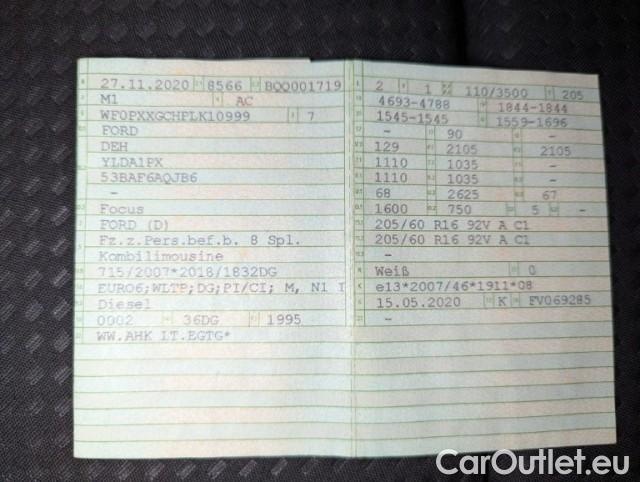 27.11.2020 8566 BQQ001719
M1 AC
WF0PXXGCHPLK10999 7
FORD
DEH
YLDA1PX
53BAF6AQJB6
-
Focus
FORD (D)
Fz.z.Pers.bef.b. 8 Spl.
Kombilimousine
715/2007*2018/1832DG
EURO6;WLTP;DG;PI/CI; M, N1 I
Diesel
0002 36DG 1995
WW.AHK LT.EGTG*
2 1 110/3500 205
4693-4788 1844-1844
1545-1545 1559-1696
- 90 -
129 2105 2105
1110 1035 -
1110 1035 -
68 2625 67
1600 750 5 -
205/60 R16 92V A C1
205/60 R16 92V A C1
-
Weiß 0
e13*2007/46*1911*08
15.05.2020 K FV069285
-
CarOutlet.eu